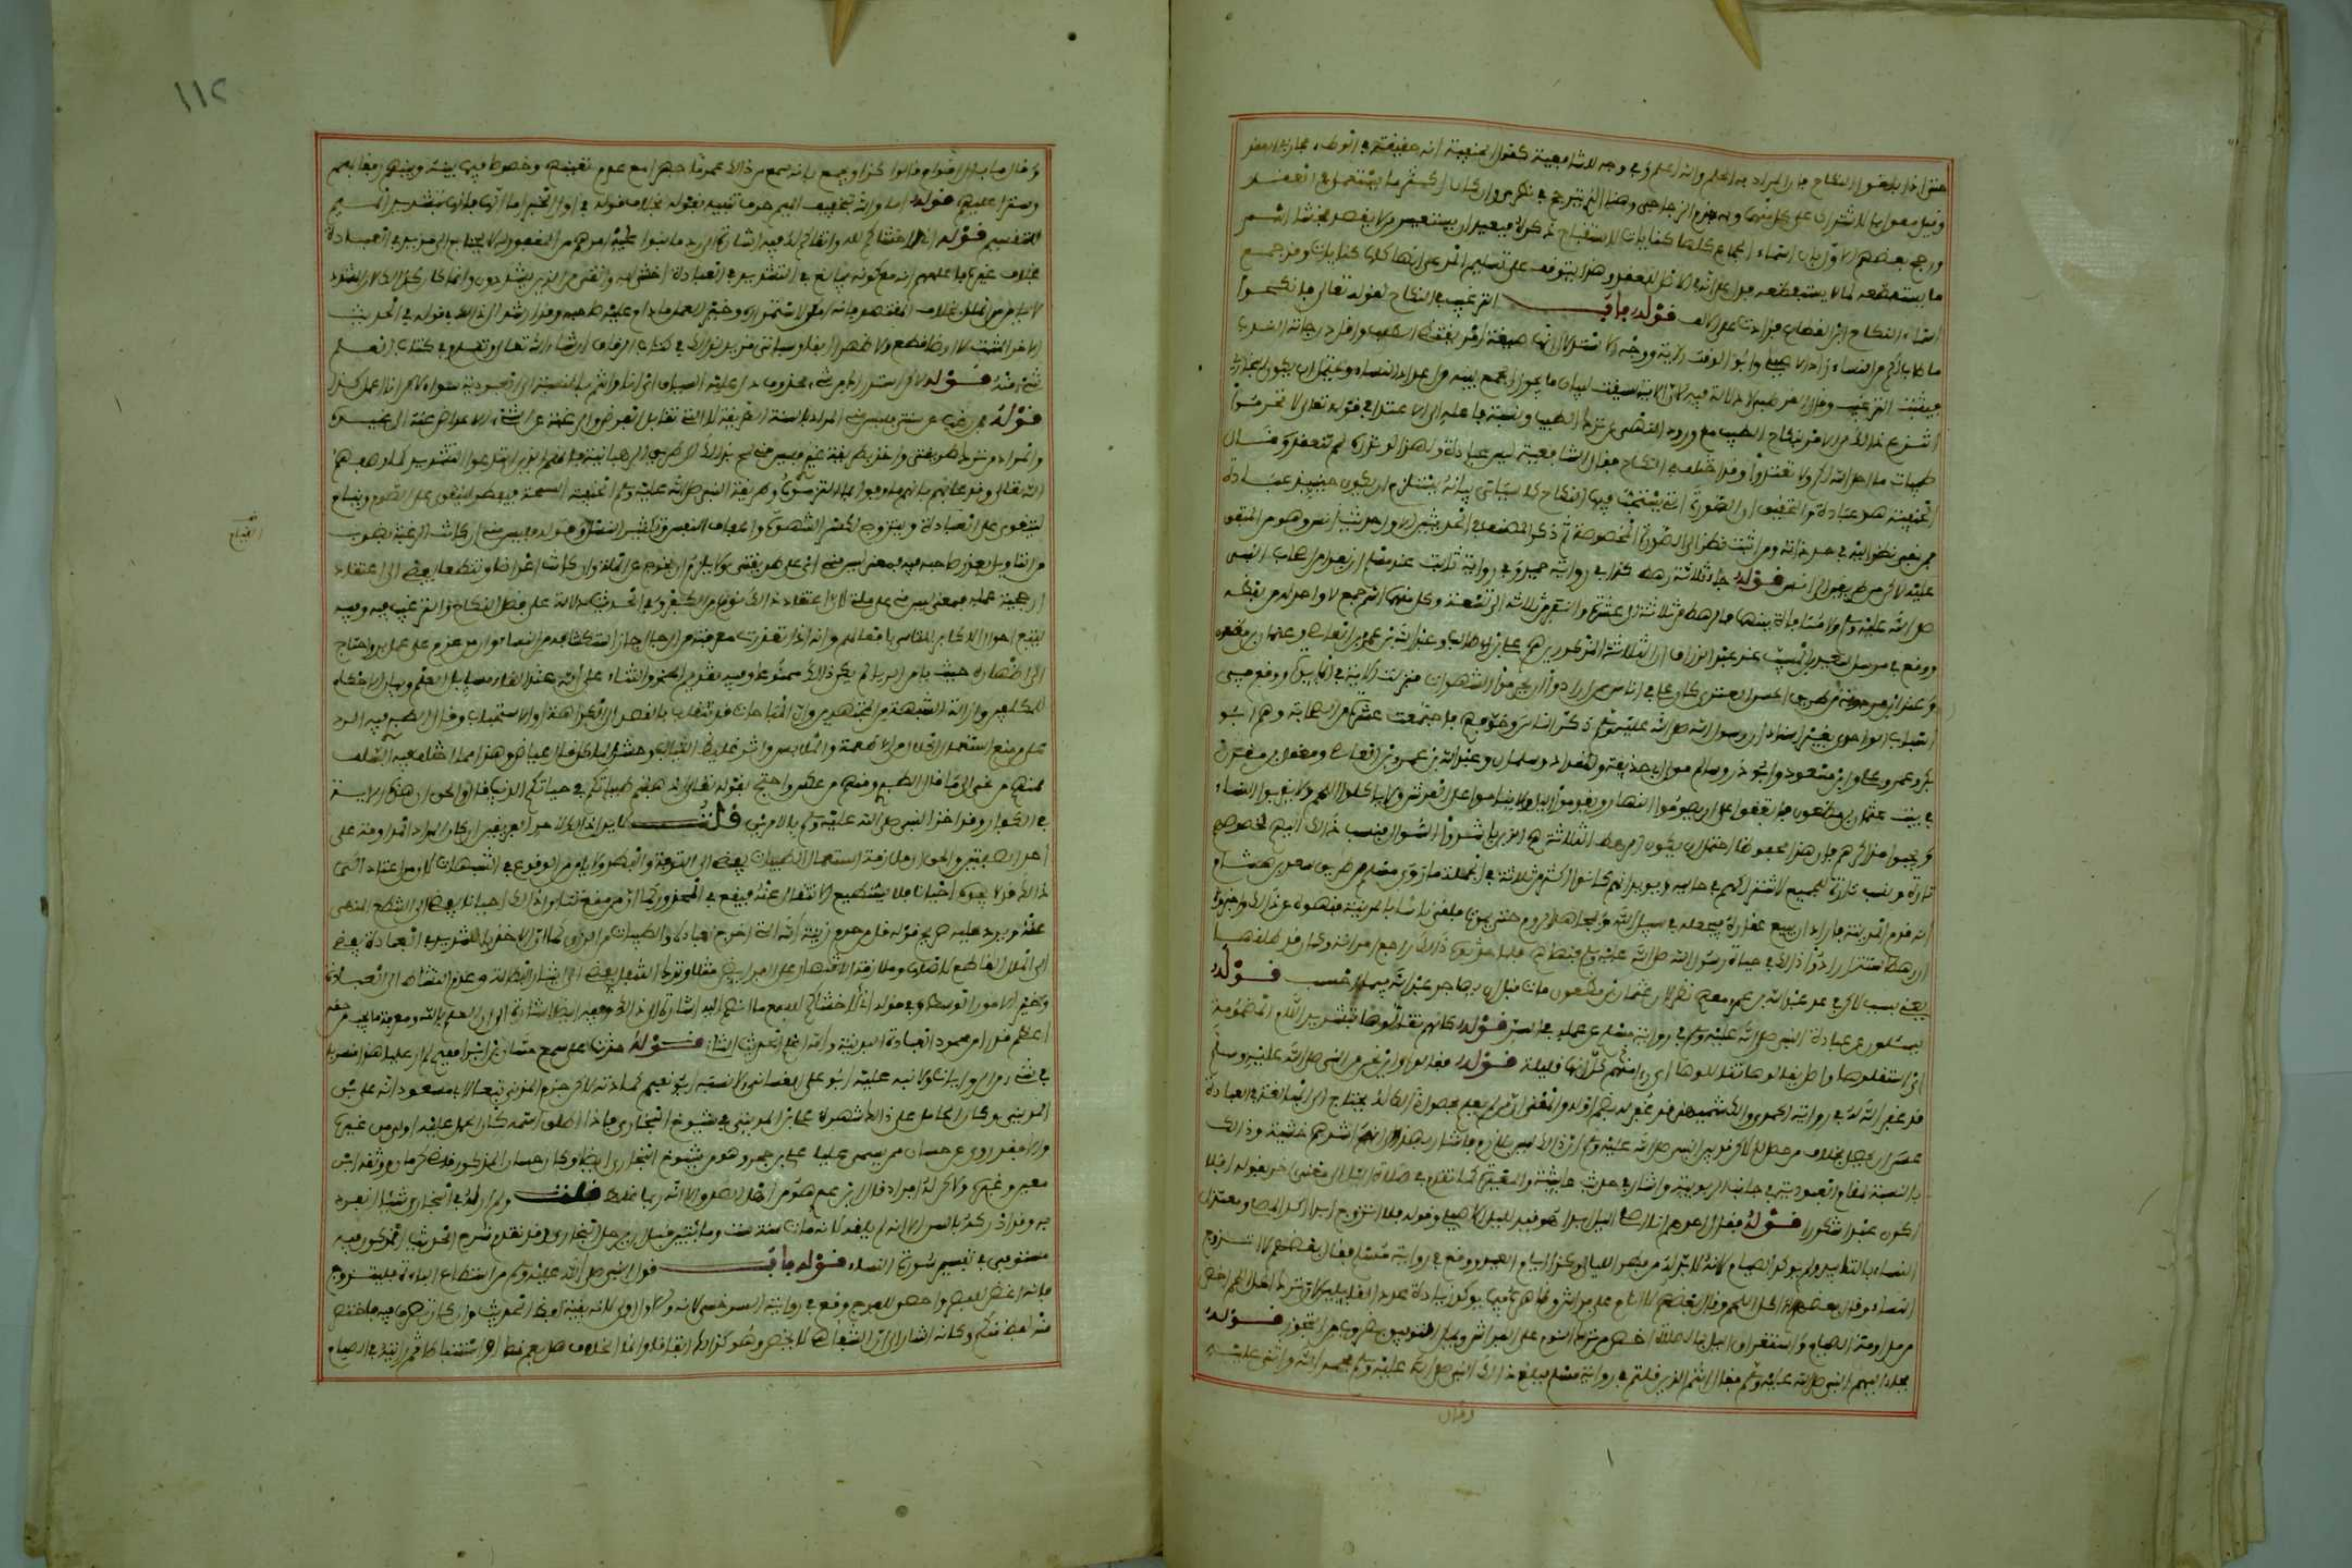 حتى إذا بلغوا النكاح فإن المراد به الحلم والله أعلم وفي وجه للشافعية كقول الحنفية أنه حقيقة في الوطء مجاز في العقد
وقيل مقول بالاشتراك على كل منهما وبه جزم الزجاجي وهذا الذي يترجح في نظري وإن كان أكثر ما يستعمل في العقد
ورجح بعضهم الأول بأن أسماء الجماع كلها كنايات لاستقباح ذكره فيبعد أن يستعير من لا يقصد فحشا اسم
ما يستفظعه لما لا يستفظعه فدل على أنه في الأصل للعقد وهذا يتوقف على تسليم المدعى أنها كلها كنايات وقد جمع
أسماء النكاح ابن القطاع فزادت على الألف قوله باب الترغيب في النكاح لقوله تعالى فانكحوا
ما طاب لكم من النساء زاد الأصيلي وأبو الوقت الآية ووجه الاستدلال أنها صيغة أمر يقتضي الطلب وأقل درجاته الندب
فيثبت الترغيب وقال القرطبي لا دلالة فيه لأن الآية سيقت لبيان ما يجوز الجمع بينه من أعداد النساء ويحتمل أن يكون البخاري
انتزع ذلك من الأمر بنكاح الطيب مع ورود النهي عن ترك الطيب ونسبة فاعله إلى الاعتداء في قوله تعالى لا تحرموا
طيبات ما أحل الله لكم ولا تعتدوا وقد اختلف في النكاح فقال الشافعية ليس عبادة ولهذا لو نذره لم ينعقد وقال
الحنفية هو عبادة والتحقيق أن الصورة التي يستحب فيها النكاح كما سيأتي بيانه يستلزم أن يكون حينئذ عبادة
فمن نفى نظر إليه في حد ذاته ومن أثبت نظر إلى الصورة المخصوصة ثم ذكر المصنف في الحديثين الأول حديث أنس وهو من المتفق
عليه لكن من طريقين إلى أنس قوله جاء ثلاثة رهط كذا في رواية حميد وفي رواية ثابت عند مسلم أن نفرا من أصحاب النبي
صلى الله عليه وسلم ولا منافاة بينهما فالرهط من ثلاثة إلى عشرة والنفر من ثلاثة إلى تسعة وكل منهما اسم جمع لا واحد له من لفظه
ووقع في مرسل سعيد بن المسيب عند عبد الرزاق أن الثلاثة المذكورين هم علي بن أبي طالب وعبد الله بن عمرو بن العاصي وعثمان بن مظعون
وعند ابن مردويه من طريق الحسن العدني كان علي في أناس ممن أرادوا أن يحرموا الشهوات فنزلت الآية في المائدة ووقع في
أسباب الواحدي بغير إسناد أن رسول الله صلى الله عليه وسلم ذكر الناس وخوفهم فاجتمعت عشرة من الصحابة وهم أبو
بكر وعمر وعلي وابن مسعود وأبو ذر وسالم مولى أبي حذيفة والمقداد وسلمان وعبد الله بن عمرو بن العاصي ومعقل بن مقرن
في بيت عثمان بن مظعون فاتفقوا على أن يصوموا النهار ويقوموا الليل ولا يناموا على الفرش ولا يأكلوا اللحم ولا يقربوا النساء
ويجبوا مذاكيرهم فإن كان هذا محفوظا احتمل أن يكون الرهط الثلاثة هم الذين باشروا السؤال فنسب ذلك إليهم بخصوصهم
تارة ونسب تارة للجميع لاشتراكهم في طلبه ويؤيد أنهم كانوا أكثر من ثلاثة في الجملة ما روى مسلم من طريق سعد بن هشام
أنه قدم المدينة فأراد أن يبيع عقاره فيجعله في سبيل الله ويجاهد الروم حتى يموت فلقي ناسا بالمدينة فنهوه عن ذلك وأخبروه
أن رهطا ستة أرادوا ذلك في حياة رسول الله صلى الله عليه وسلم فنهاهم فلما حدثوه ذلك راجع امرأته وكان قد طلقها
يعني بسبب ذلك في عد عبد الله بن عمرو معهم نظر لأن عثمان بن مظعون مات قبل أن يهاجر عبد الله فيما أحسب قوله
يسألون عن عبادة النبي صلى الله عليه وسلم في رواية مسلم عن عمله في السر قوله كأنهم تقالوها بتشديد اللام المضمومة
أي استقلوها وأصل تقالوها تقاللوها أي رأى كل منهم أنها قليلة قوله فقالوا وأين نحن من النبي صلى الله عليه وسلم
قد غفر الله له في رواية الحموي والكشميهني قد غفر له بضم أوله والمعنى أن من لم يعلم بحصول ذلك له يحتاج إلى المبالغة في العبادة
عسى أن يحصل بخلاف من حصل له لكن قد بين النبي صلى الله عليه وسلم أن ذلك ليس بلازم فأشار إلى هذا بأنه أشدهم خشية وذلك
بالنسبة لمقام العبودية في جانب الربوبية وأشار في حديث عائشة والمغيرة كما تقدم في صلاة الليل إلى معنى آخر بقوله أفلا
أكون عبدا شكورا قوله فقال أحدهم أما أنا فأصلي الليل أبدا هو قيد لليل لا لأصلي وقوله فلا أتزوج أبدا أكد المصلي ومعتزل
النساء بالتأبيد ولم يؤكد الصيام لأنه لا بد له من فطر الليالي وكذا أيام العيد ووقع في رواية مسلم فقال بعضهم لا أتزوج
النساء وقال بعضهم لا آكل اللحم وقال بعضهم لا أنام على فراش وظاهره مما يؤكد زيادة عدد القائلين لأن ترك أكل اللحم أخص
من مداومة الصيام واستغراق الليل بالصلاة أخص من ترك النوم على الفراش ويمكن التوفيق بضروب من التجوز قوله
فجاء إليهم النبي صلى الله عليه وسلم فقال أنتم الذين قلتم في رواية مسلم فبلغ ذلك النبي صلى الله عليه وسلم فحمد الله وأثنى عليه
وقال
١١٢
وقال ما بال أقوام قالوا كذا ويجمع بأنه منع من ذلك عموما جهرا مع عدم تعيينهم وخصوصا فيما بينه وبينهم رفقا بهم
وسترا عليهم قوله أما والله بتخفيف الميم حرف تنبيه بخلاف قوله في أول الخبر أما أنا فإنها بتشديد الميم
للتقسيم قوله إني لأخشاكم لله وأتقاكم له فيه إشارة إلى رد ما بنوا عليه أمرهم من أن المغفور له لا يحتاج إلى مزيد في العبادة
بخلاف غيره فأعلمهم أنه مع كونه يبالغ في التشديد في العبادة أخشى لله وأتقى من الذين يشددون وإنما كان كذلك لأن المشدد
لا يأمن من الملل بخلاف المقتصد فإنه أمكن لاستمراره وخير العمل ما داوم عليه صاحبه وقد أرشد إلى ذلك في قوله في الحديث
الآخر المنبت لا أرضا قطع ولا ظهرا أبقى وسيأتي مزيد لذلك في كتاب الرقاق إن شاء الله تعالى وتقدم في كتاب العلم
شيء منه قوله لكني استدراك من شيء محذوف دل عليه السياق أي أنا وأنتم بالنسبة إلى العبودية سواء لكن أنا أعمل كذا
قوله فمن رغب عن سنتي فليس مني المراد بالسنة الطريقة لا التي تقابل الفرض والرغبة عن الشيء الإعراض عنه إلى غيره
والمراد من ترك طريقتي وأخذ بطريقة غيري فليس مني ولمح بذلك إلى طريق الرهبانية فإنهم الذين ابتدعوا التشديد كما وصفهم
الله تعالى وقد عابهم بأنهم ما وفوا بما التزموه وطريقة النبي صلى الله عليه وسلم الحنيفية السمحة فيفطر ليتقوى على الصوم وينام
ليتقوى على العبادة ويتزوج لكسر الشهوة وإعفاف النفس وتكثير النسل وقوله فليس مني إن كانت الرغبة بضرب
القيام
من التأويل يعذر صاحبه فيه فمعنى ليس مني أي على طريقتي ولا يلزم أن يخرج عن الملة وإن كانت إعراضا وتنطعا يفضي إلى اعتقاد
أرجحية عمله فمعنى ليس مني ليس على ملتي لأن اعتقاد ذلك نوع من الكفر وفي الحديث دلالة على فضل النكاح والترغيب فيه وفيه
تتبع أحوال الأكابر للتأسي بأفعالهم وأنه إذا تعذرت معرفته من الرجال جاز استكشافه من النساء وأن من عزم على عمل بر واحتاج
إلى إظهاره حيث يأمن الرياء لم يكن ذلك ممنوعا وفيه تقديم الحمد والثناء على الله عند إلقاء مسائل العلم وبيان الأحكام
للمكلفين وإزالة الشبهة عن المجتهدين وأن المباحات قد تنقلب بالقصد إلى الكراهة والاستحباب وقال الطبري فيه الرد
على من منع استعمال الحلال من الأطعمة والملابس وآثر غليظ الثياب وخشن المأكل قال عياض هذا مما اختلف فيه السلف
فمنهم من نحى إلى ما قال الطبري ومنهم من عكس واحتج بقوله تعالى أذهبتم طيباتكم في حياتكم الدنيا قال والحق أن هذه الآية
في الكفار وقد أخذ النبي صلى الله عليه وسلم بالأمرين قلت لا يدل ذلك لأحد الفريقين إن كان المراد المداومة على
أحد الصفتين والحق أن ملازمة استعمال الطيبات يفضي إلى الترفه والبطر ولا يأمن من الوقوع في الشبهات لأن من اعتاد
ذلك قد لا يجده أحيانا فلا يستطيع الانتقال عنه فيقع في المحذور كما أن منع تناول ذلك أحيانا يفضي إلى التنطع المنهي
عنه ويرد عليه صريح قوله قل من حرم زينة الله التي أخرج لعباده والطيبات من الرزق كما أن الأخذ بالتشديد في العبادة يفضي
إلى الملل القاطع لأصلها وملازمة الاقتصار على الفرائض مثلا وترك التنفل يفضي إلى إيثار البطالة وعدم النشاط إلى العبادة
وخير الأمور الوسط وفي قوله إني لأخشاكم لله مع ما انضم إليه إشارة إلى ذلك وفيه أيضا إشارة إلى أن العلم بالله ومعرفة ما يجب من حقه
أعظم قدرا من مجرد العبادة البدنية والله أعلم الحديث الثاني قوله حدثنا علي سمع حسان بن إبراهيم لم أر عليا هذا منسوبا
في شيء من الروايات ولا نبه عليه أبو علي الغساني ولا نسبه أبو نعيم كعادته لكن جزم المزي تبعا لأبي مسعود أنه علي بن
المديني وكان الحامل على ذلك شهرة علي بن المديني في شيوخ البخاري فإذا أطلق اسمه كان الحمل عليه أولى من غيره
وإلا فقد روى عن حسان ممن يسمى عليا علي بن حجر وهو من شيوخ البخاري أيضا وكان حسان المذكور قاضي كرمان ووثقه ابن
معين وغيره ولكن له أفراد قال ابن عدي هو من أهل الصدق إلا أنه ربما غلط قلت ولم أر له في البخاري شيئا انفرد
به وقد أدركه بالسن إلا أنه لم يلقه لأنه مات سنة ست ومائتين قبل أن يرحل البخاري وقد تقدم شرح الحديث المذكور فيه
مستوفى في تفسير سورة النساء قوله باب قول النبي صلى الله عليه وسلم من استطاع الباءة فليتزوج
فإنه أغض للبصر وأحصن للفرج وقع في رواية السرخسي لأنه والأول أولى لأنه بقية لفظ الحديث وإن كان تصرف فيه فاختصر
منه لفظ منكم وكأنه أشار إلى أن الشفاهي لا يخص وهو كذلك اتفاقا وإنما الخلاف هل يعم نصا أو استنباطا ثم رأيته في الصيام